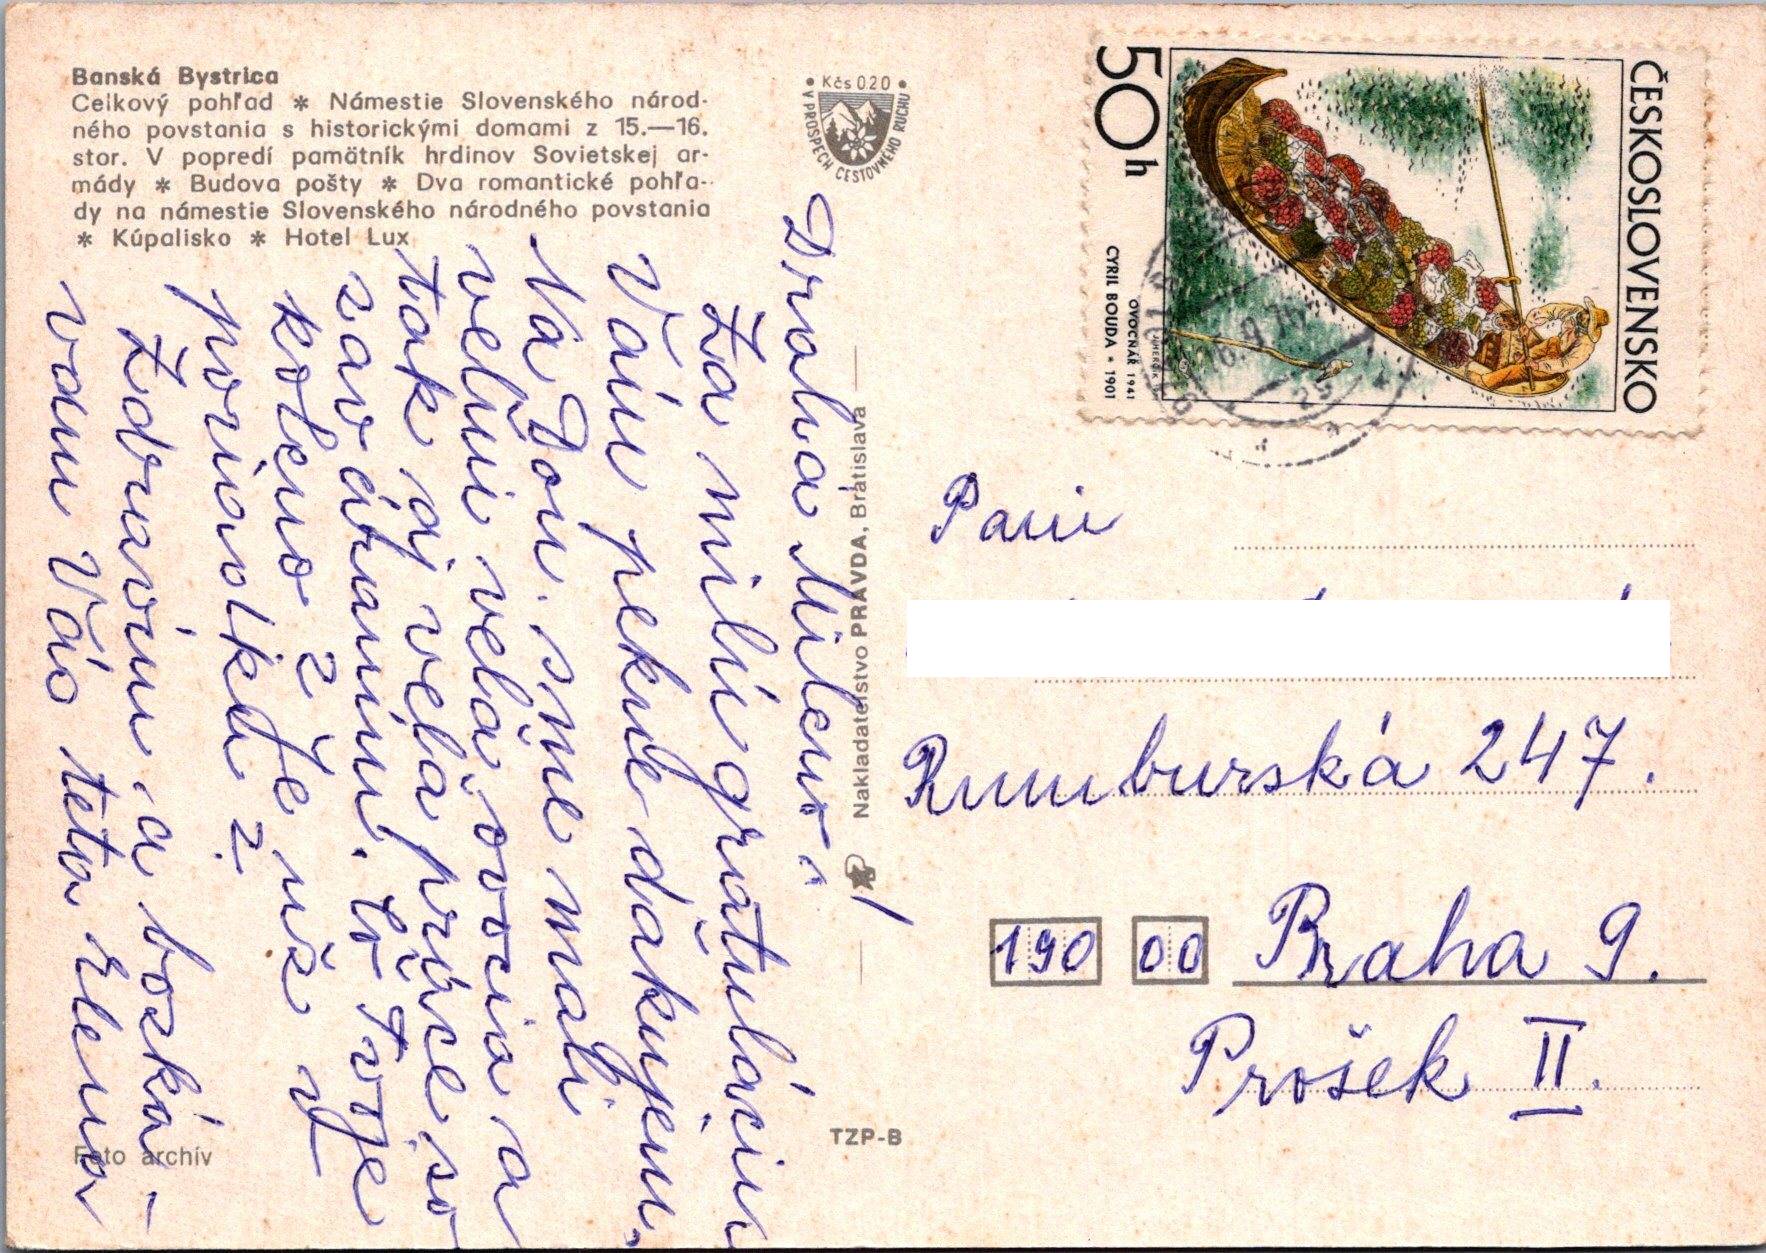 Banská Bystrica
Celkový pohľad * Námestie Slovenského národ-
ného povstania s historickými domami z 15.—16.
stor. V popredí pamätník hrdinov Sovietskej ar-
mády * Budova pošty * Dva romantické pohľa-
dy na námestie Slovenského národného povstania
* Kúpalisko * Hotel Lux
Kčs 0.20
V PROSPECH CESTOVNÉHO RUCHU
Drahá Milenó!
Za milú gratuláciu
Vám pekne ďakujem.
Na Don. sme mali
veľmi veľa ovocia a
tak aj veľa práce so
zaváraním. Čo Tvoje
koleno? Že už v
poriadku?
Zdravím a bozká-
vam Vás teta Elena
Foto archív
Nakladateľstvo PRAVDA, Bratislava
TZP-B
ČESKOSLOVENSKO
50h
OVOCNÁŘ 1941
CYRIL BOUDA * 1901
Pani
Rumburská 247.
190 00 Praha 9.
Prošek II.